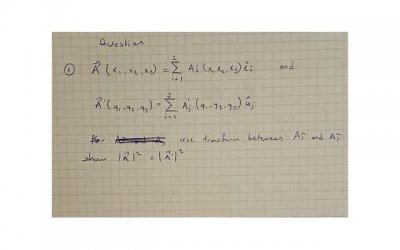 Question
① A⃗ (x₁, x₂, x₃) = ∑³ᵢ₌₁ Aᵢ (x₁, x₂, x₃) êᵢ and
A⃗ (q₁, q₂, q₃) = ∑³ⱼ₌₁ A'ⱼ (q₁, q₂, q₃) q̂ⱼ
use transform between Aᵢ and Aⱼ
show |A⃗|² = |A⃗'|²